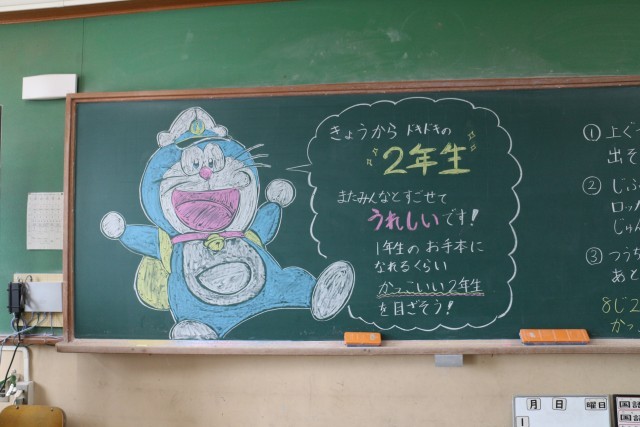 きょうから ドキドキの
2年生
またみんなとすごせて
うれしいです!
1年生の お手本に
なれるくらい
かっこいい2年生
を目ざそう!
① 上ぐ
出そ
② じぶ
ロッカ
じゅん
③ つうち
あと
8じ2
かっ
月 日 曜日
1
国語
国語